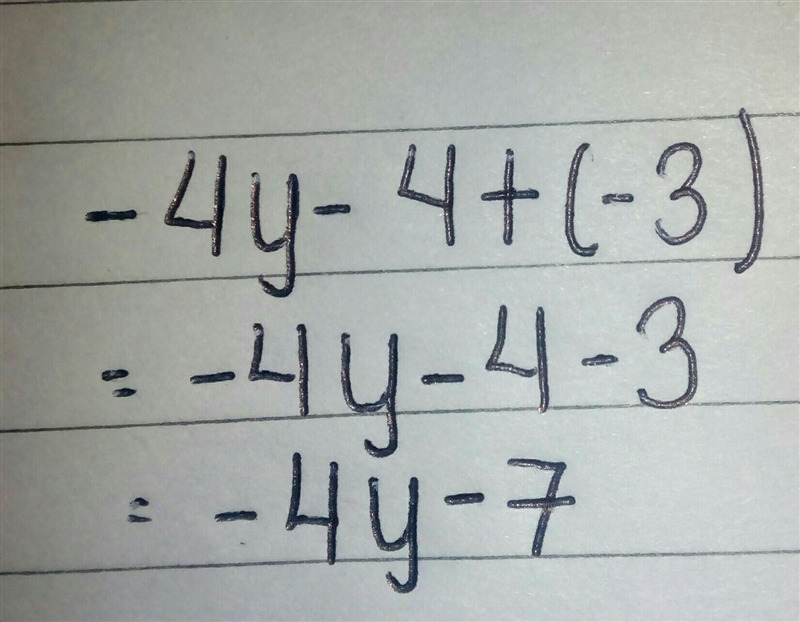 -4y - 4 + (-3)
= -4y - 4 - 3
= -4y - 7